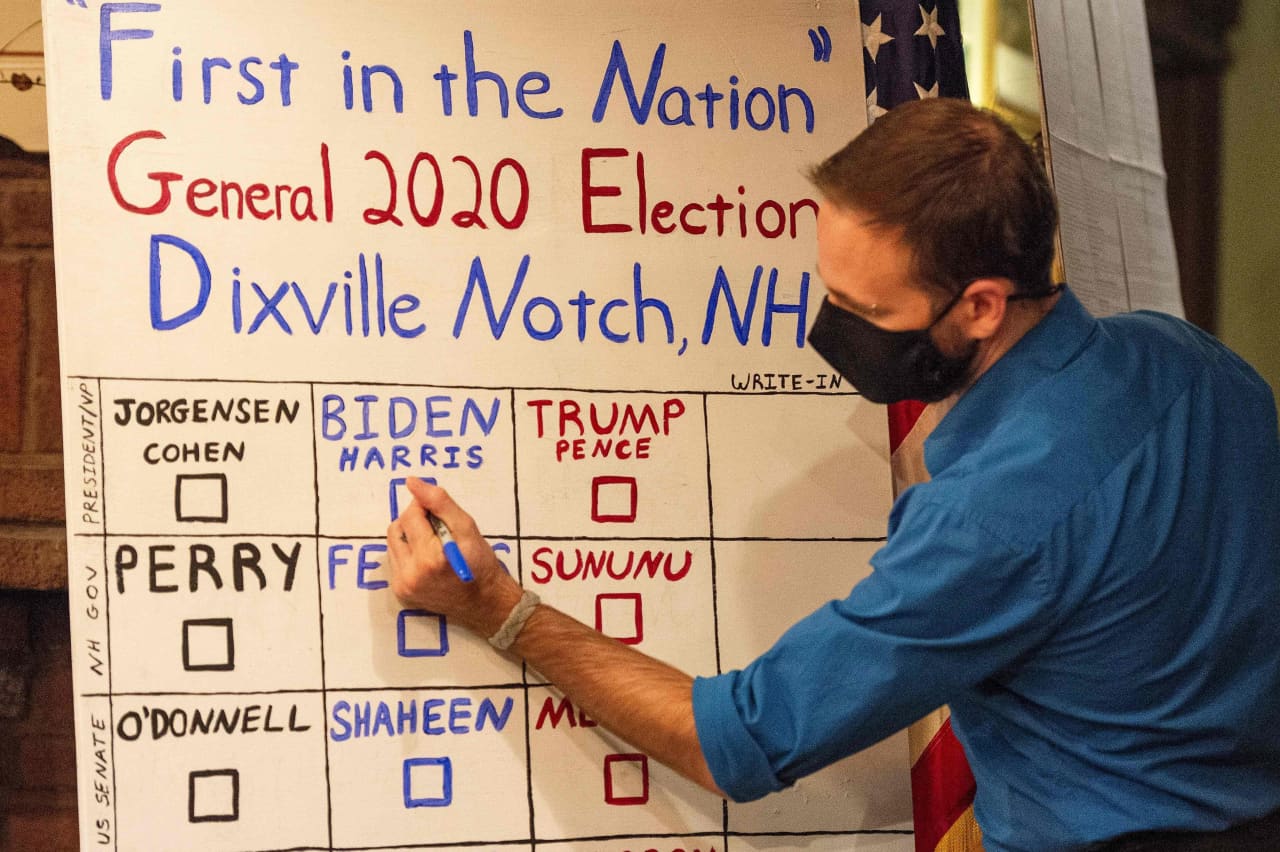 "First in the Nation"
General 2020 Election
Dixville Notch, NH
WRITE-IN
PRESIDENT/VP
JORGENSEN BIDEN TRUMP
COHEN HARRIS PENCE
NH GOV
PERRY SUNUNU
US SENATE
O'DONNELL SHAHEEN